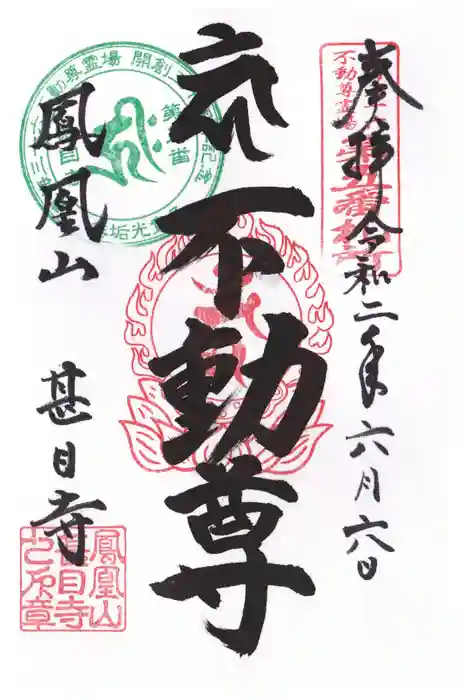 奉拝
令和二年六月六日
不動尊霊場
不動尊
鳳凰山
甚目寺
動尊霊場 開創
鳳凰山
甚目寺